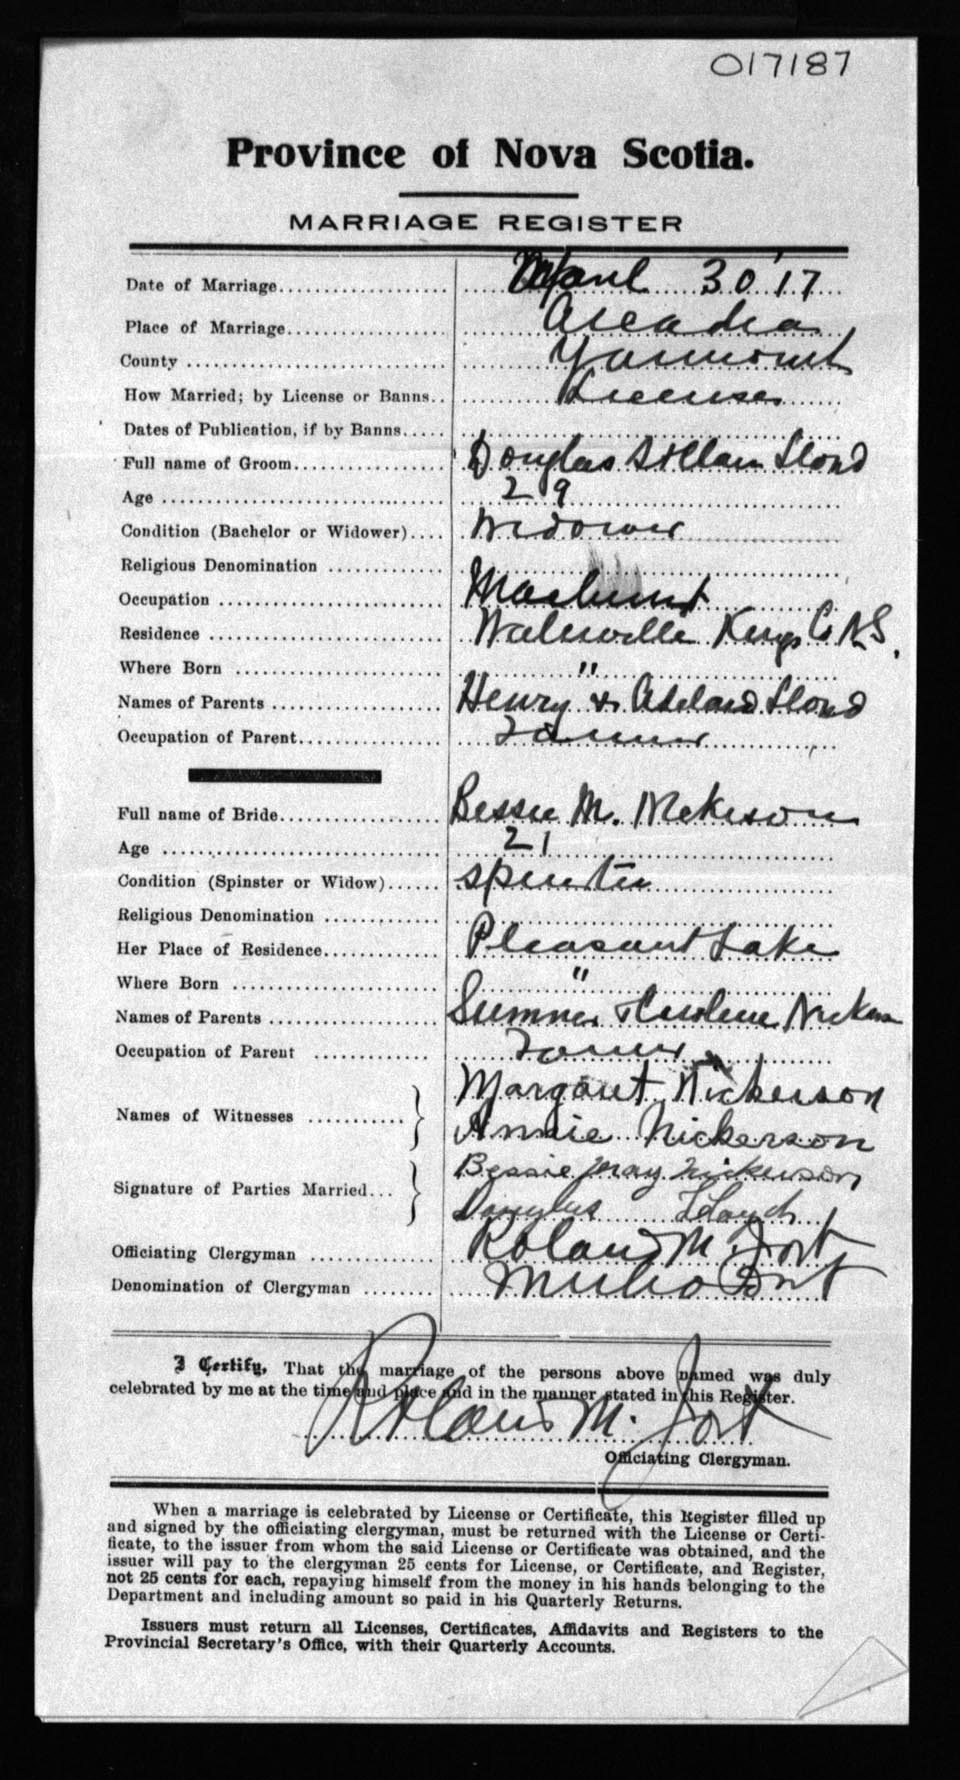 017187
Province of Nova Scotia.
MARRIAGE REGISTER
Date of Marriage April 30 '17
Place of Marriage Arcadia
County Yarmouth
How Married; by License or Banns License
Dates of Publication, if by Banns
Full name of Groom Douglas Allan Lloyd
Age 29
Condition (Bachelor or Widower) Widower
Religious Denomination
Occupation Machinist
Residence Waterville Kings Co N.S.
Where Born "
Names of Parents Henry & Lloyd
Occupation of Parent Farmer
Full name of Bride Bessie M. Nickerson
Age 21
Condition (Spinster or Widow) Spinster
Religious Denomination
Her Place of Residence Pleasant Lake
Where Born "
Names of Parents Sumner & Caroline
Occupation of Parent Farmer
Names of Witnesses Margaret Nickerson
Annie Nickerson
Signature of Parties Married Bessie May Nickerson
Douglas Lloyd
Officiating Clergyman Roland M. Jost
Denomination of Clergyman
I Certify, That the marriage of the persons above named was duly
celebrated by me at the time and place and in the manner stated in this Register.
Roland M. Jost
Officiating Clergyman.
When a marriage is celebrated by License or Certificate, this Register filled up
and signed by the officiating clergyman, must be returned with the License or Certi-
ficate, to the issuer from whom the said License or Certificate was obtained, and the
issuer will pay to the clergyman 25 cents for License, or Certificate, and Register,
not 25 cents for each, repaying himself from the money in his hands belonging to the
Department and including amount so paid in his Quarterly Returns.
Issuers must return all Licenses, Certificates, Affidavits and Registers to the
Provincial Secretary's Office, with their Quarterly Accounts.